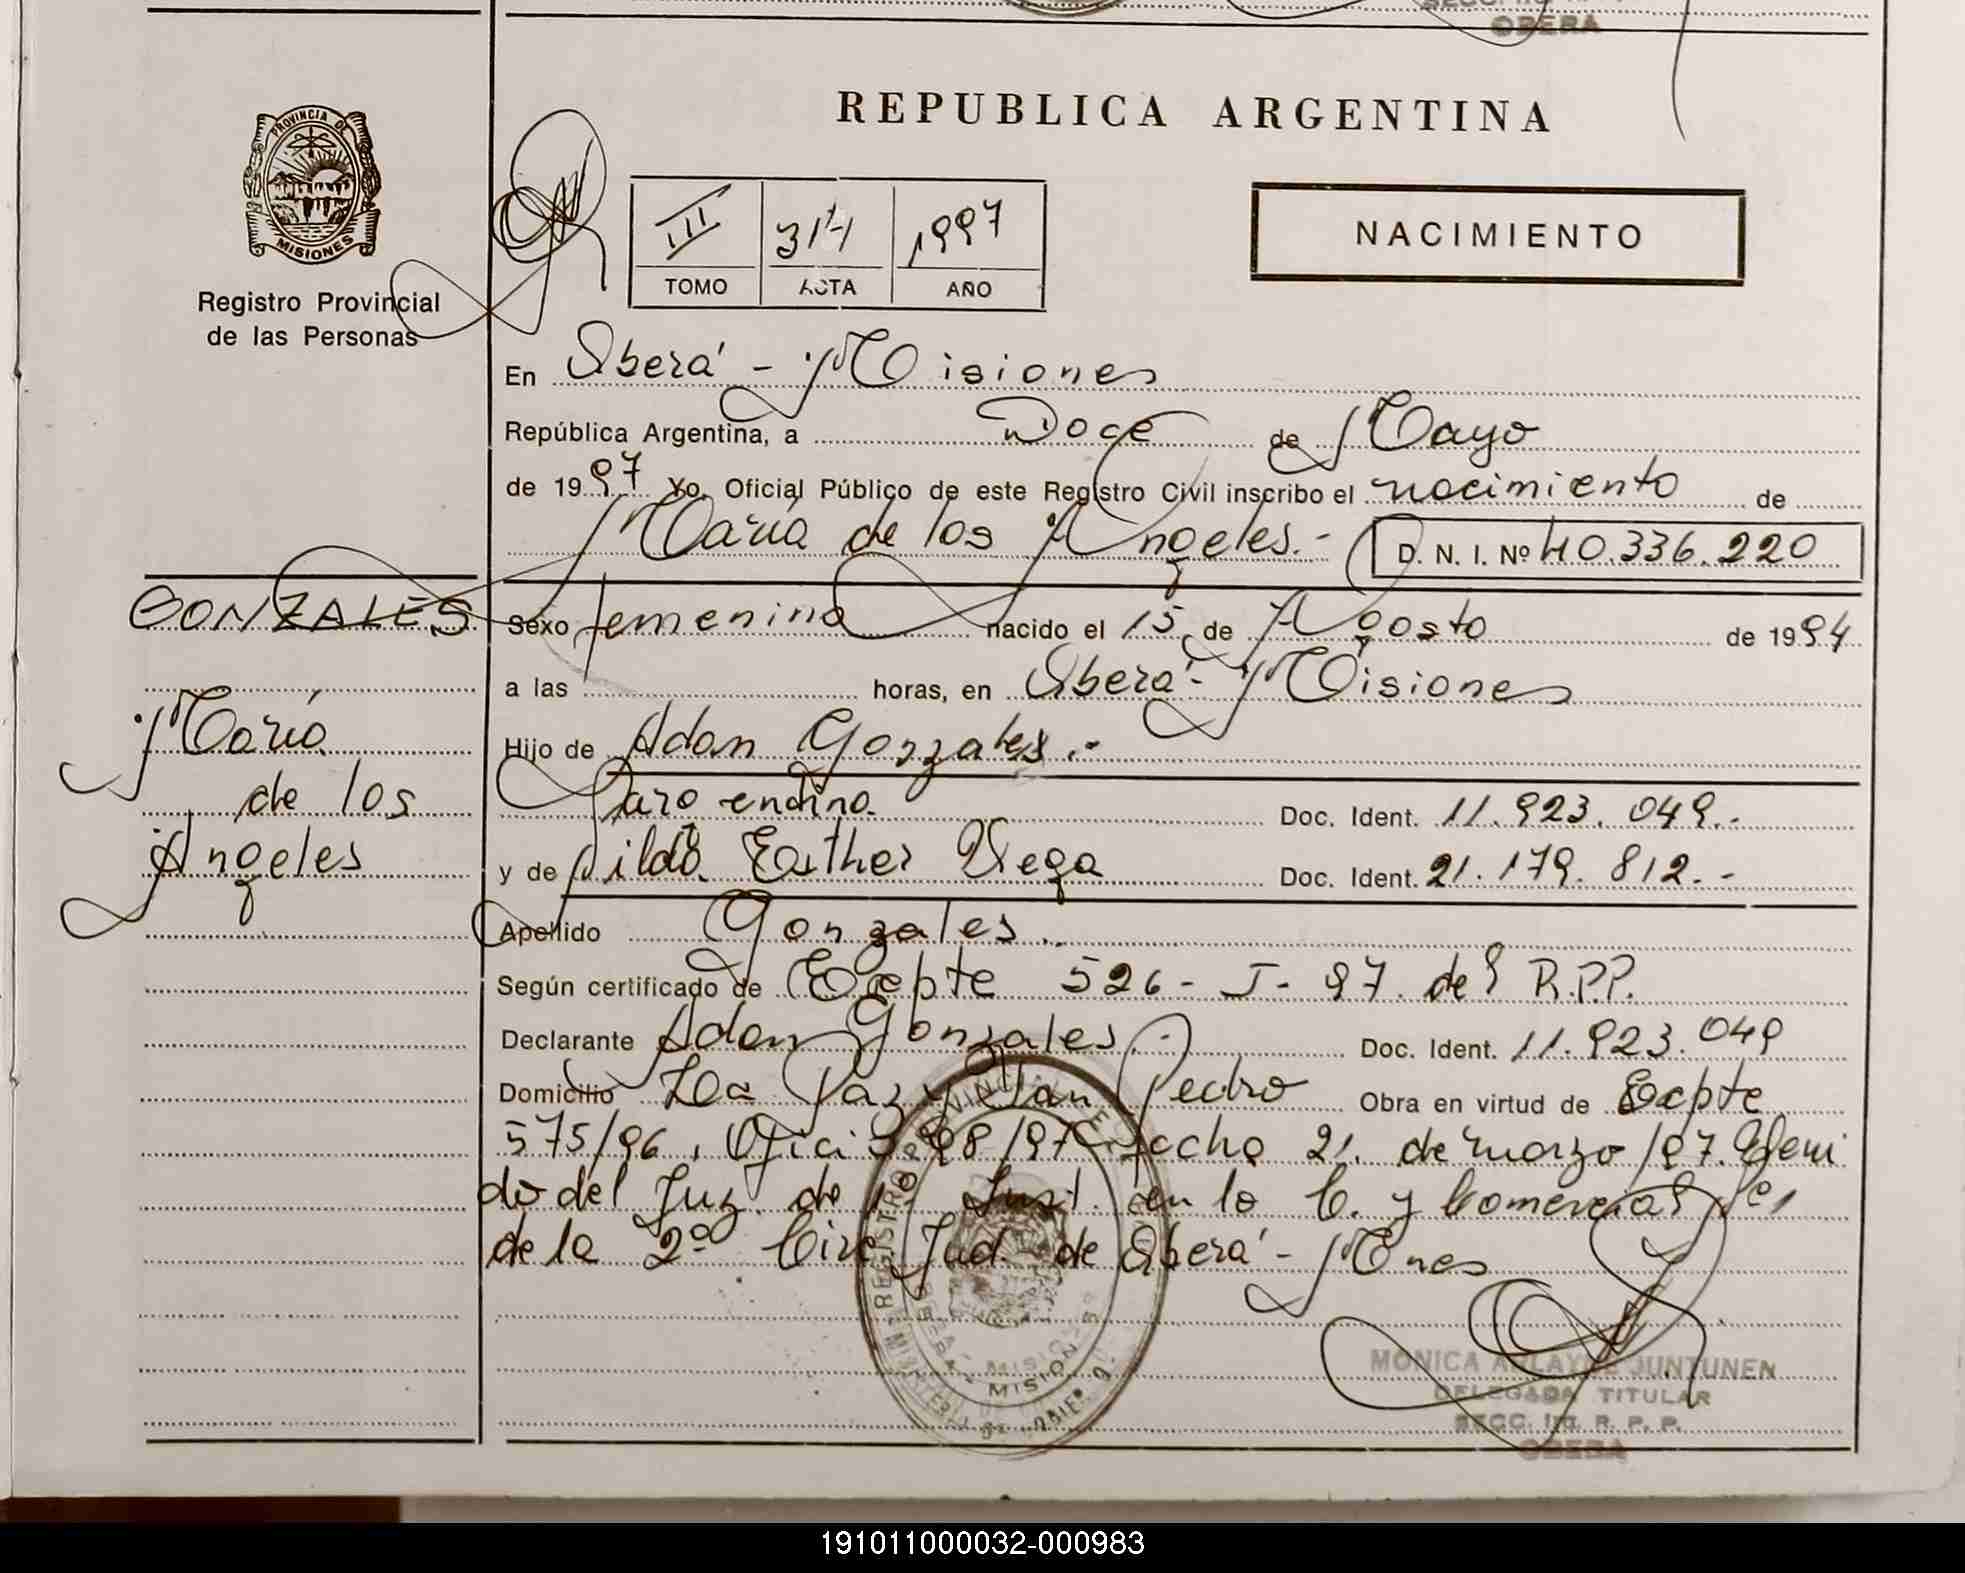 OBERA
PROVINCIA DE
MISIONES
Registro Provincial
de las Personas
REPUBLICA ARGENTINA
III 314 1997
TOMO ACTA AÑO
NACIMIENTO
En Oberá - Misiones
República Argentina, a Doce de Mayo
de 1997 Yo, Oficial Público de este Registro Civil inscribo el nacimiento de
María de los Angeles.- D. N. I. Nº 40.336.220
GONZALES
María
de los
Angeles
Sexo femenino nacido el 15 de Agosto de 1994
a las horas, en Oberá - Misiones
Hijo de Adan Gonzales.-
Argentino. Doc. Ident. 11.923.049.-
y de Esther Vega Doc. Ident. 21.179.812.-
Apellido Gonzales.
Según certificado de Expte 526-J-97 del R.P.P.
Declarante Adan Gonzales.- Doc. Ident. 11.923.049
Domicilio La Paz y San Pedro Obra en virtud de Expte
575/96, Oficio 98/97 fecha 21. de marzo/97.
del Juz. de 1º Inst. en lo C. y Comercial
de la 2º Circ Jud. de Oberá - Mnes
REGISTRO PROVINCIAL DE
MISIONES
MONICA JUNTUNEN
DELEGADA TITULAR
SECC. R. P. P.
OBERA
191011000032-000983